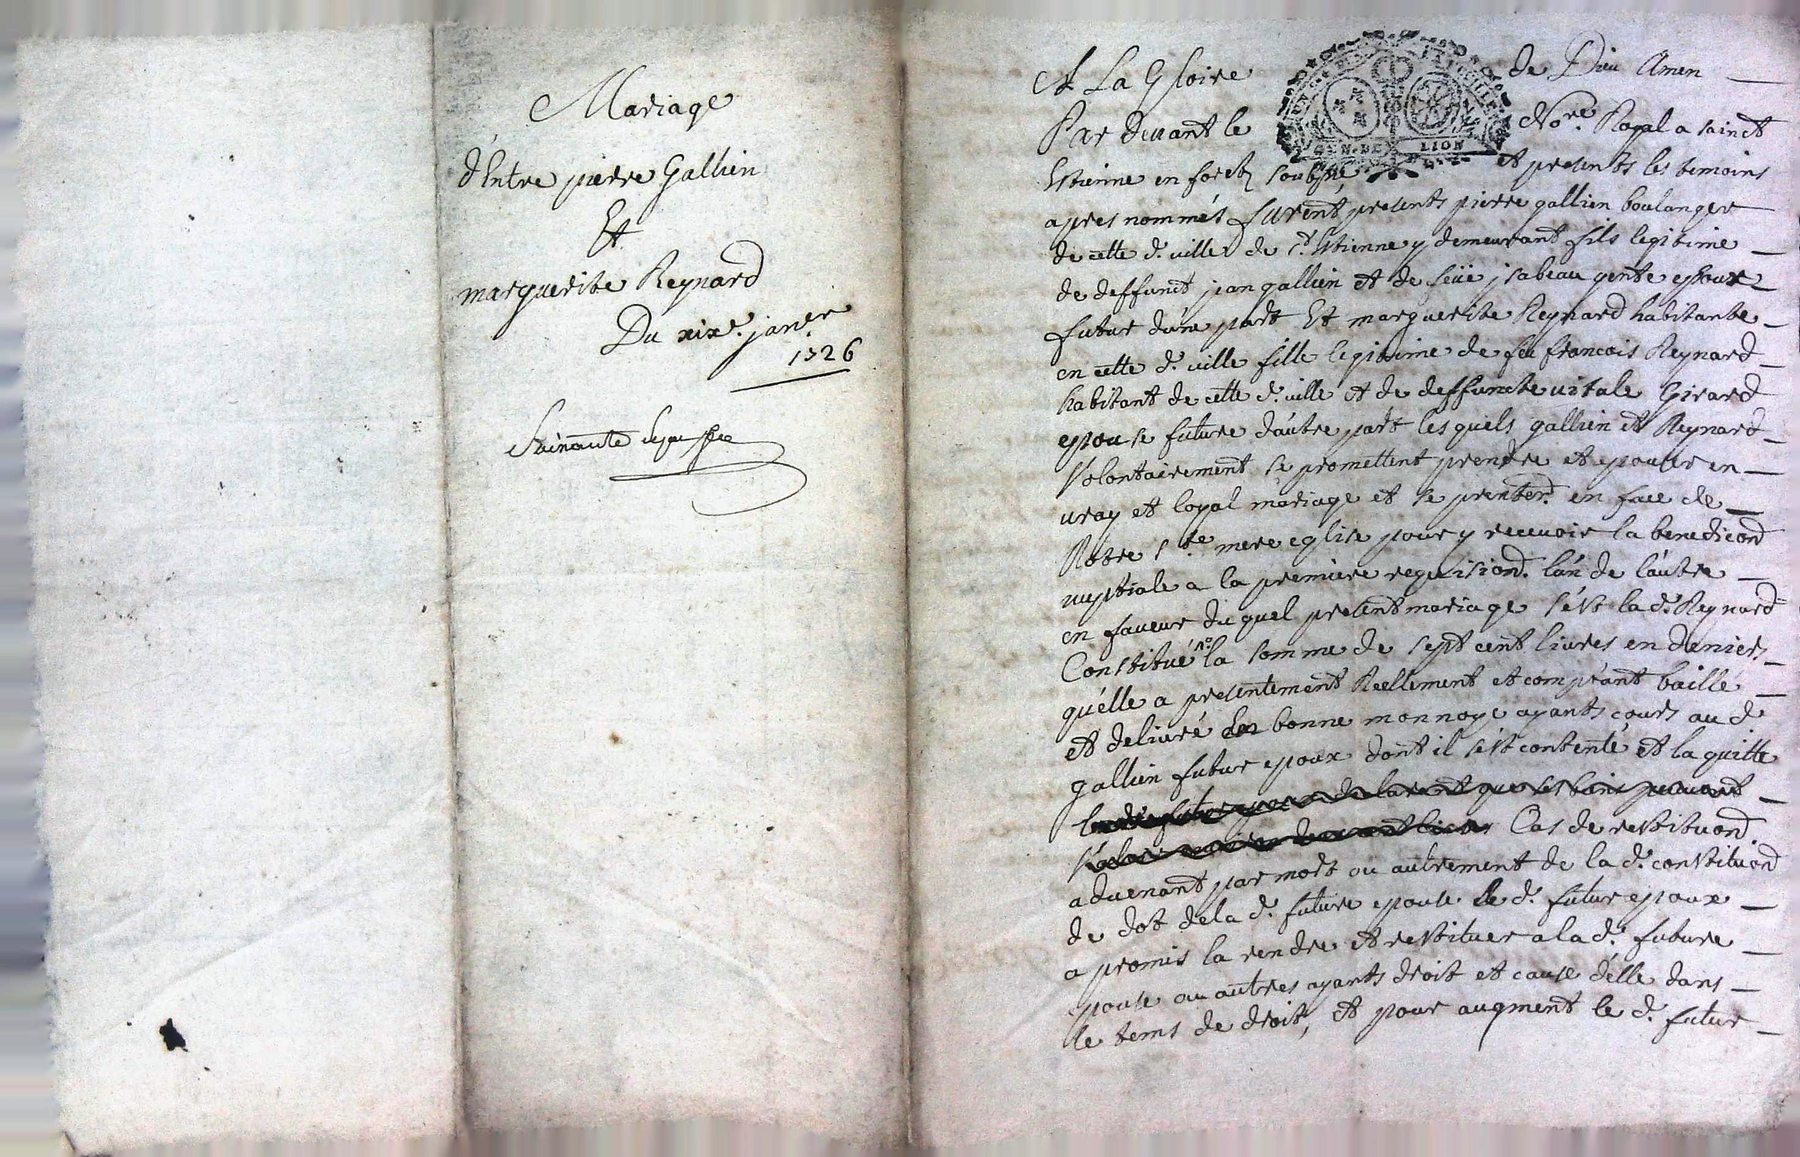 Mariage
d'Entre pierre Gallien
Et
marguerite Reynard
Du xixe. janer
1726
A La Gloire de Dieu Amen
Par devant le Nore. Royal a sainct
Estienne en forestz soubsné et presents les temoins
apres nommés furent presents pierre gallien boulanger
de cette d. ville de St. Estienne y demeurant fils legitime
de deffunct jean gallien et de jsabeau gente epoux
futur d'une part Et marguerite Reynard habitante
en cette d. ville fille legitime de feu francois Reynard
habitant de cette d. ville et de deffuncte vitale Girard
epouse future d'autre part lesquels gallien et Reynard
Volontairement se promettent prendre et epouser en
vray et loyal mariage et se presenter en face de
Notre Ste mere eglise pour y recevoir la benediond
nuptiale a la premiere requisiond. l'un de l'autre
en faveur duquel present mariage s'est la d. Reynard
Constitué la somme de sept cent livres en deniers
qu'elle a presentement Reellement et comptant baillé
et delivré en bonne monnoye ayants cours au d.
gallien futur epoux dont il s'est contenté et la quitte
Cas de restituond.
advenant par mort ou autrement de la d. constituond
de dot de la d. future epouse le d. futur epoux
a promis la rendre et restituer a la d. future
epouse ou autres ayants droit et cause d'elle dans
le tems de droit, et pour augment le d. futur
GEN. DE LION